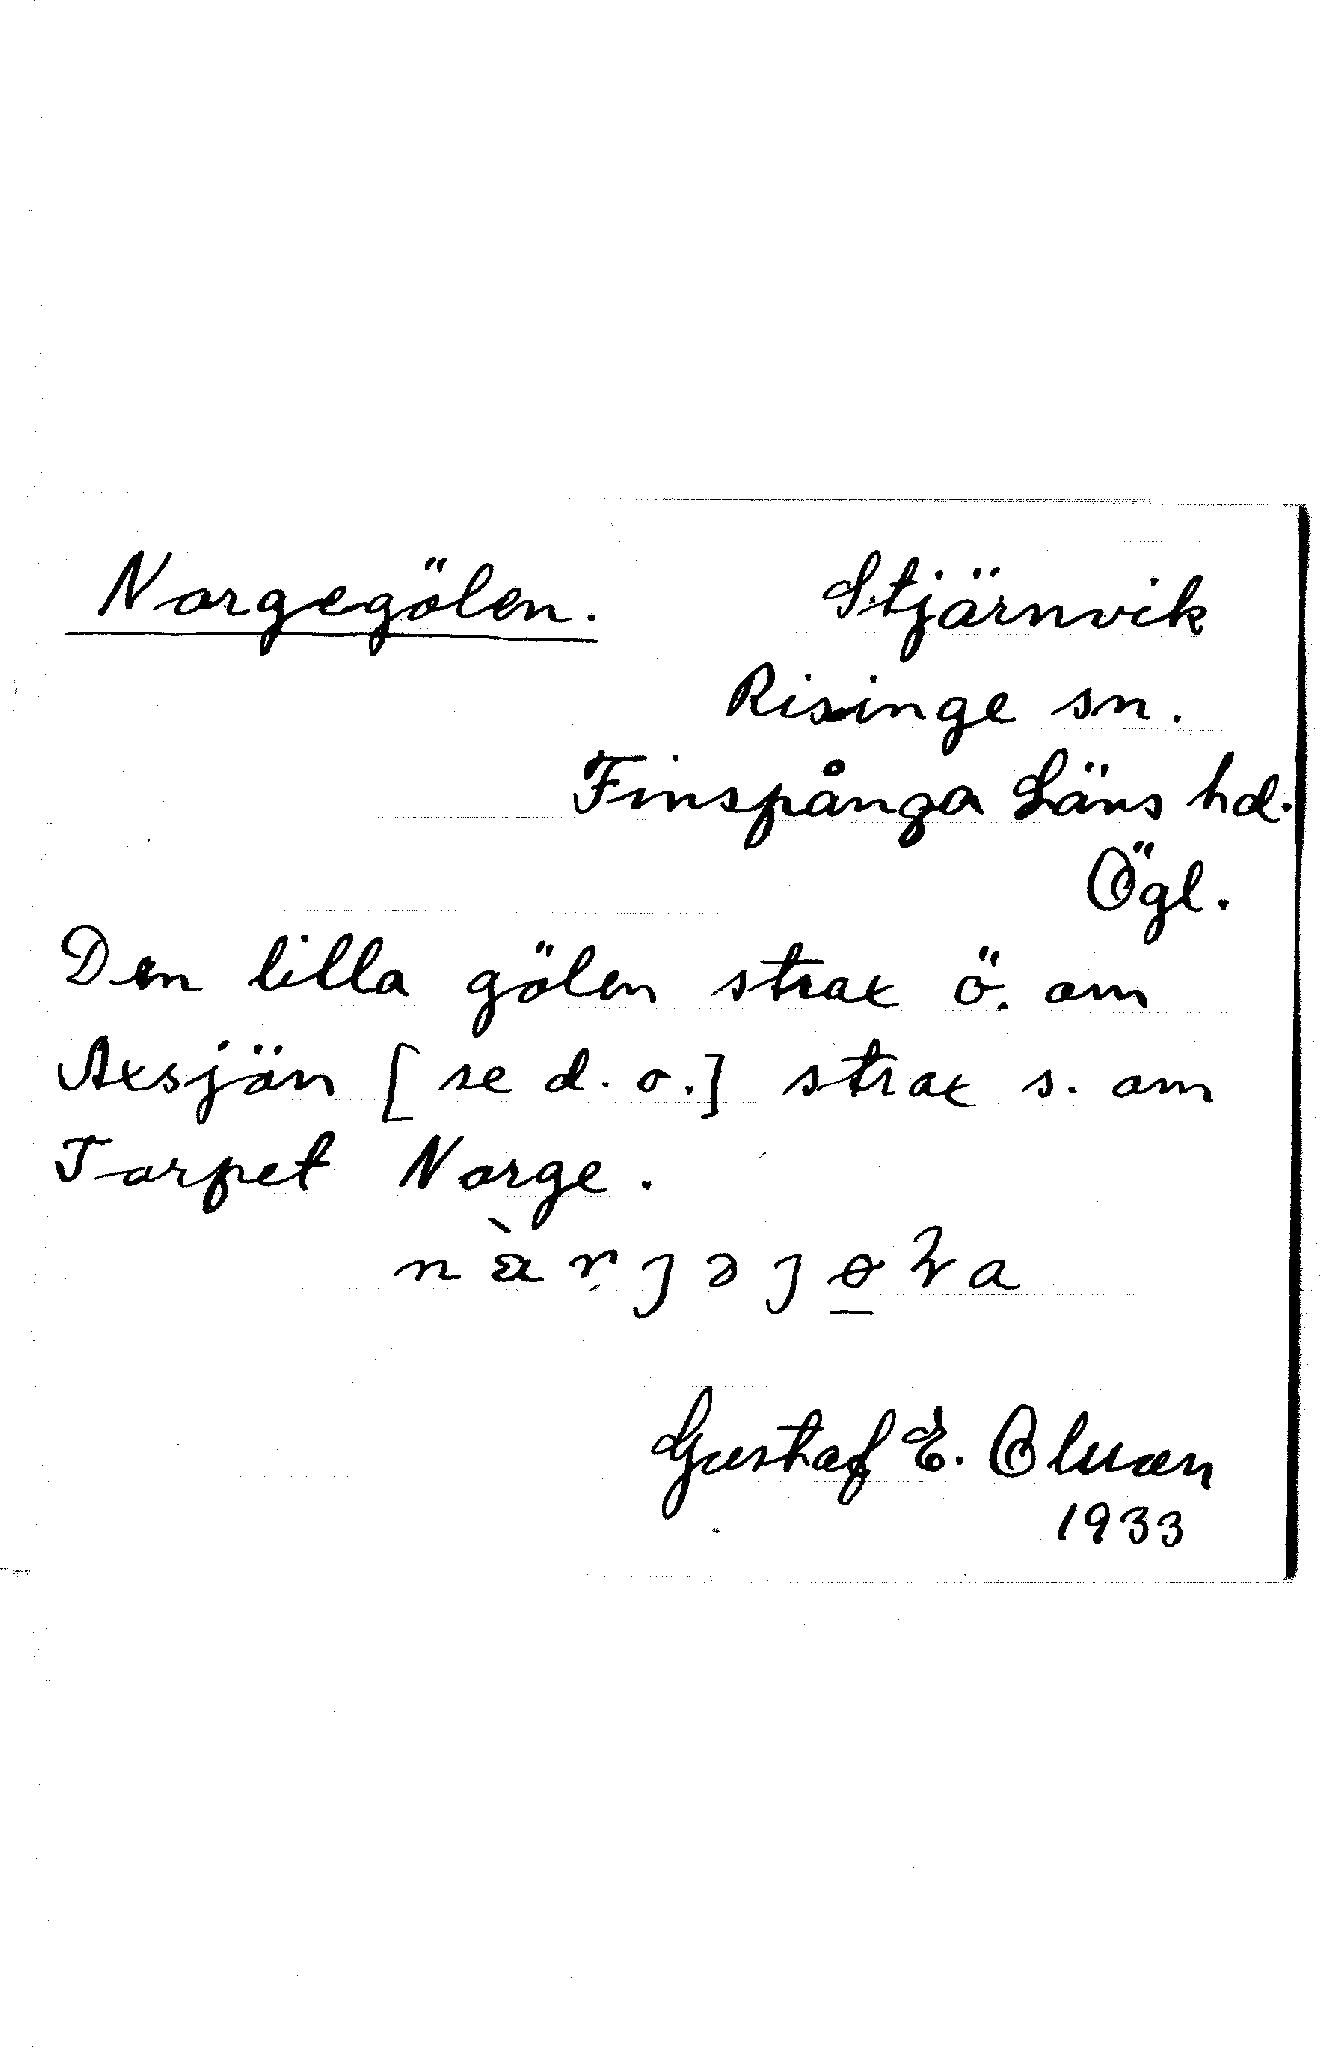 Norgegölen.
Stjärnvik
Risinge sn.
Finspånga Läns hd.
Ögl.
Den lilla gölen strax ö. om
Axsjön [se d. o.] strax s. om
Torpet Norge.
Gustaf E. Olsson
1933